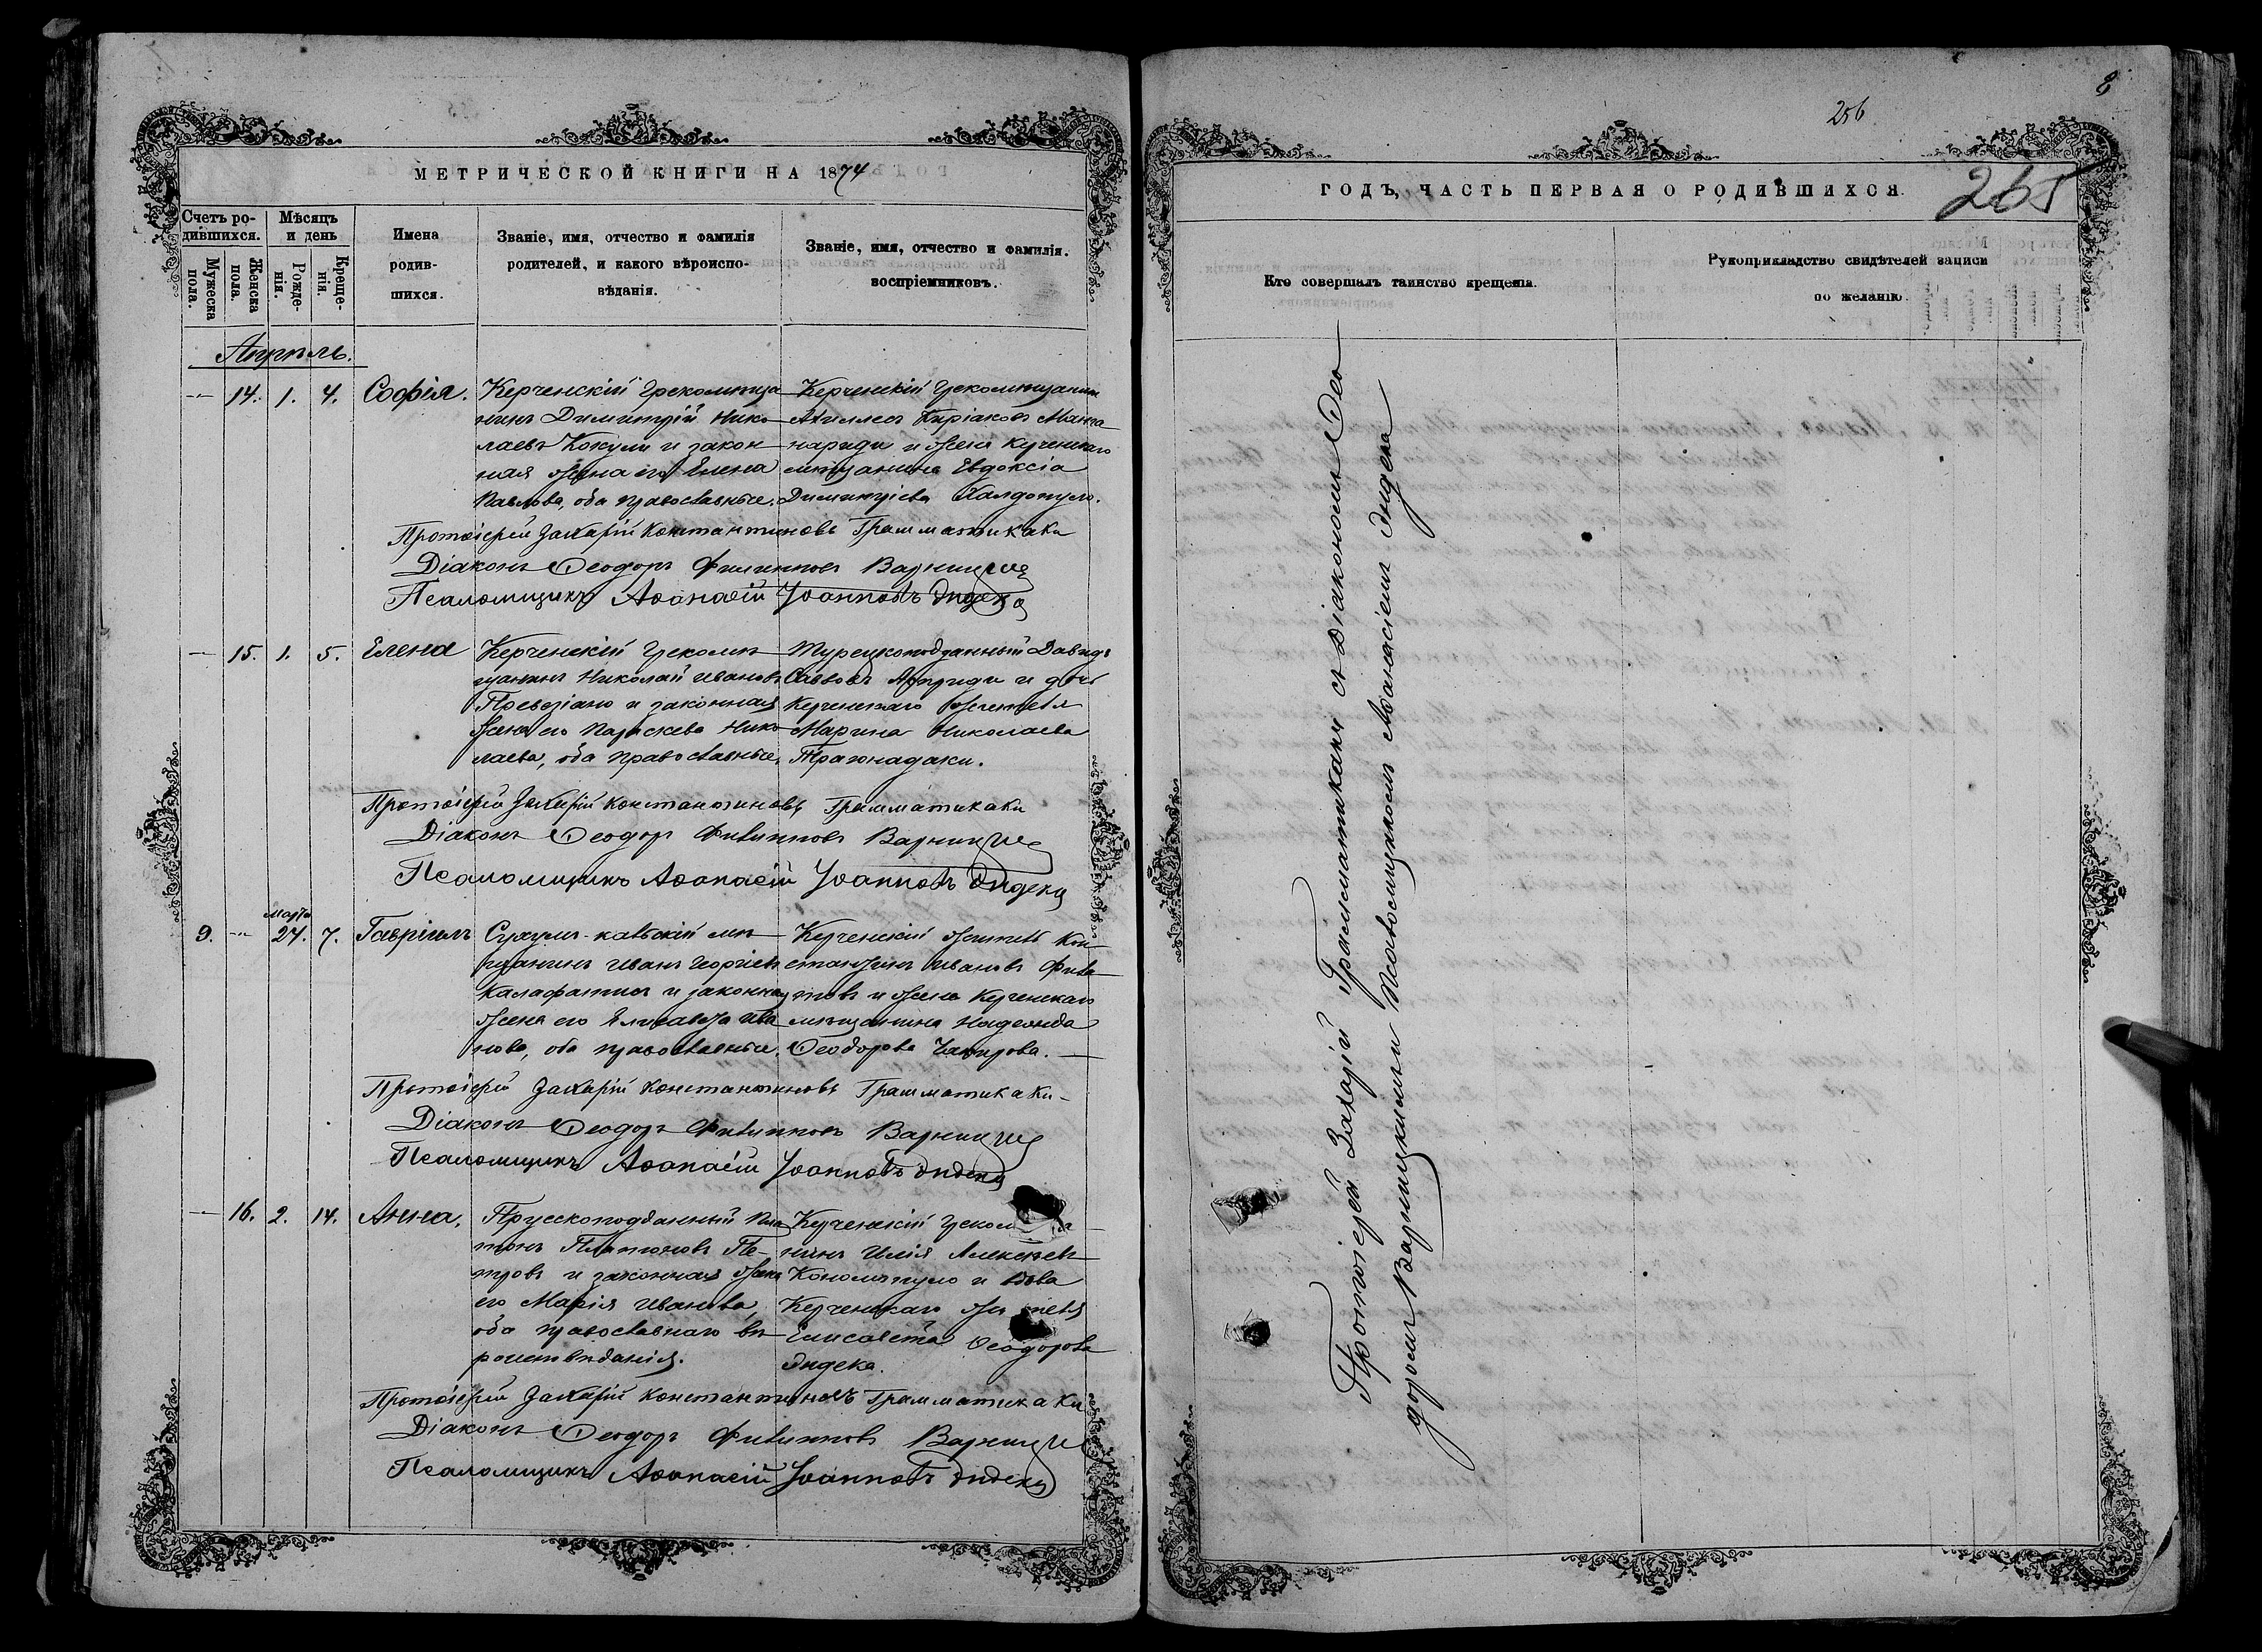 МЕТРИЧЕСКОЙ КНИГИ НА 1874
Счетъ ро-
дившихся.
Мѣсяцъ
и день
Мужеска
пола.
Женска
пола.
Рожде-
нія.
Креще-
нія.
Имена
родив-
шихся.
Званіе, имя, отчество и фамилія
родителей, и какого вѣроиспо-
вѣданія.
Званіе, имя, отчество и фамилія.
воспріемниковъ.
Апрѣль.
14. 1. 4. Софія.
Керченскій Грекомѣща
нинъ Димитрій Нико
лаевъ Кокули и закон
ная жена его Елена
Павлова, оба православные.
Керченскій Грекомѣщанин
Ахиллес Киріаков
и жена Керченскаго
мѣщанина Евдоксіа
Димитріева Халдопуло.
Протоіерей Захарій Константиновъ Грамматикаки
Діаконъ Ѳеодоръ Филиппов
Псаломщикъ Аѳанасій Іоанновъ Эндека
15. 1. 5. Елена
Керченскій Грекомѣ
щанинъ Николай Ивановъ
и законная
жена его Параскева Нико
лаева, оба православные.
Турецкоподданный Давидъ
Саввовъ и дочь
Керченскаго жителя
Марина Николаева
Протоіерей Захарій Константиновъ Грамматикаки
Діаконъ Ѳеодоръ Филиппов
Псаломщикъ Аѳанасій Іоанновъ Эндека
Марта
9. 27. 7. Гавріилъ
Сухумъ-кальскій мѣ
щанинъ Иванъ Георгіевъ
Калафатис и законная
жена его Елисавета Ива
нова, оба православные.
Керченскій житель Кон
стантинъ Ивановъ Фили
повъ и жена Керченскаго
мѣщанина Надежда
Ѳеодорова Чакирова.
Протоіерей Захарій Константиновъ Грамматикаки
Діаконъ Ѳеодоръ Филиппов
Псаломщикъ Аѳанасій Іоанновъ Эндека
16. 2. 14. Анна.
Прусскоподданный Пла
тонъ Платоновъ Пе-
тровъ и законная жена
его Марія Иванова,
оба православнаго вѣ
роисповѣданія.
Керченскій
нинъ Илія Алексѣев
и вдова
Керченскаго
Елисавета Ѳеодорова
Эндека.
Протоіерей Захарій Константиновъ Грамматикаки
Діаконъ Ѳеодоръ Филиппов
Псаломщикъ Аѳанасій Іоанновъ Эндека
8
256
265
ГОДЪ, ЧАСТЬ ПЕРВАЯ О РОДИВШИХСЯ.
Кто совершалъ таинство крещенія.
Рукоприкладство свидѣтелей записи
по желанію.
Протоіерей Захарій Грамматикаки съ Діакономъ Ѳео
доромъ Варницкимъ и Псаломщикомъ Аѳанасіемъ Эндека